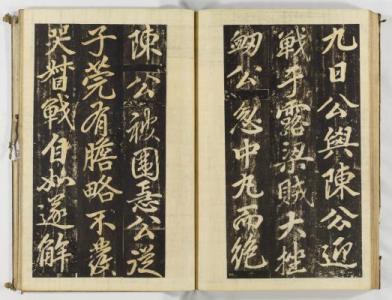 九日公與陳公迎
戰于露梁賊大挫
衂公忽中丸而絶
陳公被圍急公從
子莞有膽略不發
哭督戰自如遂解